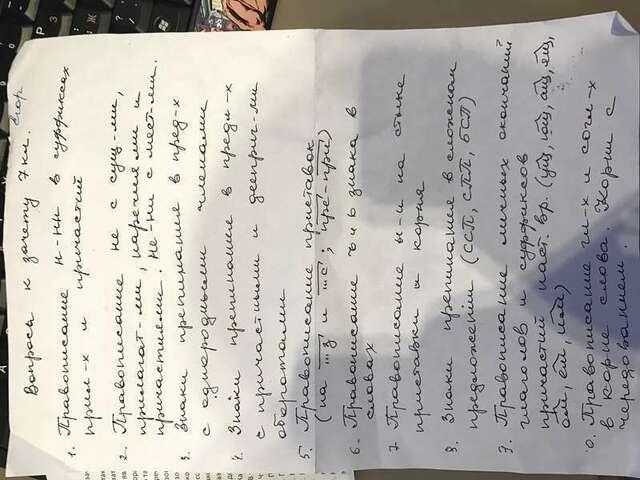 Вопросы к зачету 7 кл.
1. Правописание н-нн в суффиксах
прил-х и причастий
2. Правописание не с сущ-ми,
прилагат-ми, наречиями и
причастиями. Не ни с мест-ми.
3. Знаки препинания в пред-х
с однородными членами
4. Знаки препинания в предл-х
с причастными и дееприч-ми
оборотами
5. Правописание приставок
(на ...з и ...с; пре-при)
6. Правописание ъ и ь знака в
словах
7. Правописание ы-и на стыке
приставки и корня
8. Знаки препинания в сложном
предложении (ССП, СПП, БСП)
9. Правописание личных окончаний
глаголов и суффиксов
причастий наст. вр. (ущ, ющ, ащ, ящ,
ом, ем, им)
10. Правописание гл-х и согл-х
в корне слова. Корни с
чередованием.